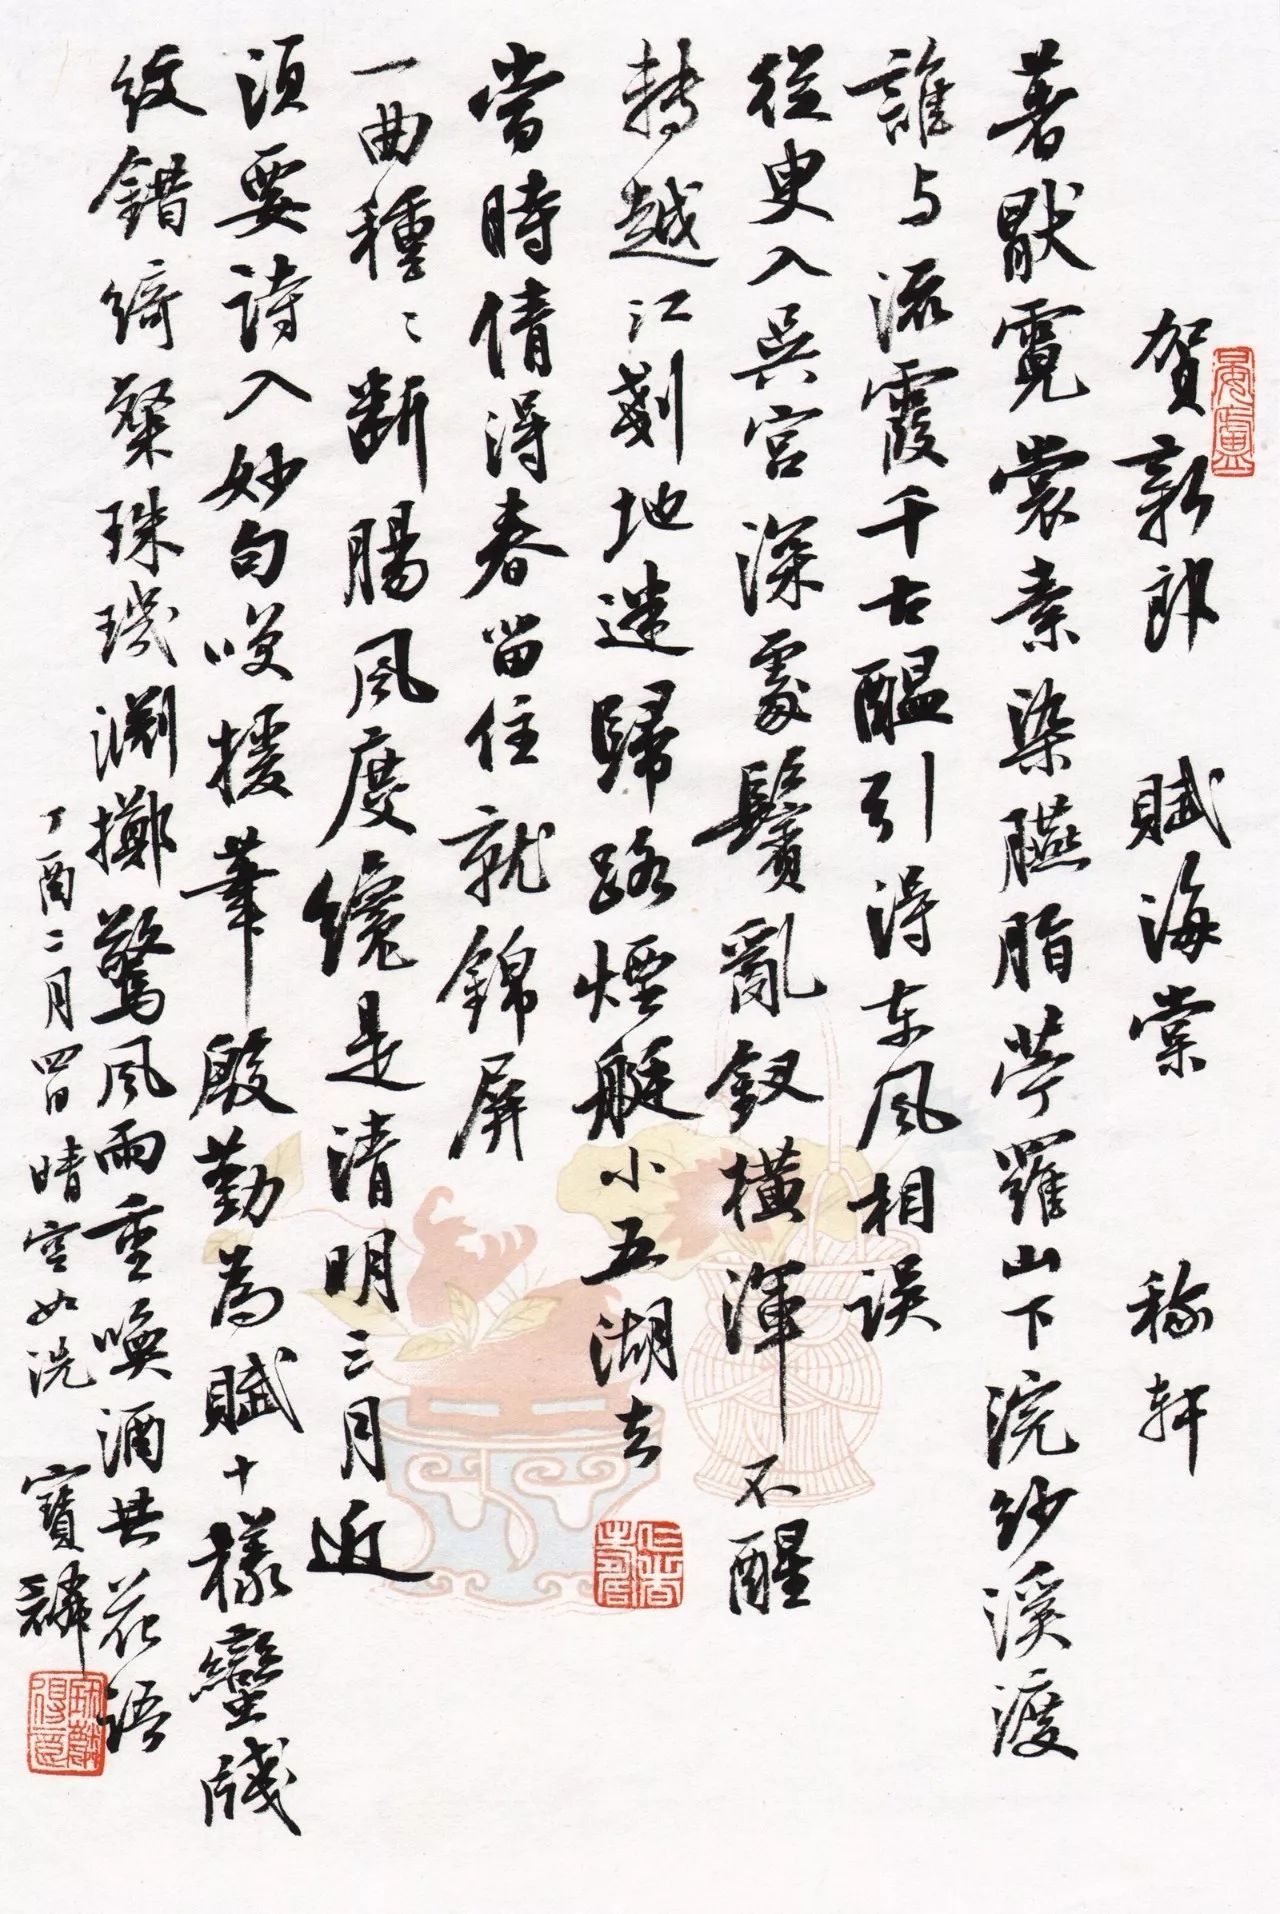 贺新郎 賦海棠 稼轩
著厭霓裳素染臙脂苧羅山下浣紗溪渡
誰与流霞千古醖引得东风相误
從臾入吴宮深處鬢亂釵橫渾不醒
轉越江剗地迷歸路煙艇小五湖去
當時倩得春留住就錦屏
一曲種〻断腸风度纔是清明三月近
須要詩入妙句笑援筆殷勤為賦十樣蠻牋
紋錯綺粲珠璣渊擲驚风雨重喚酒共花语
丁酉二月四日晴空如洗 寶麟